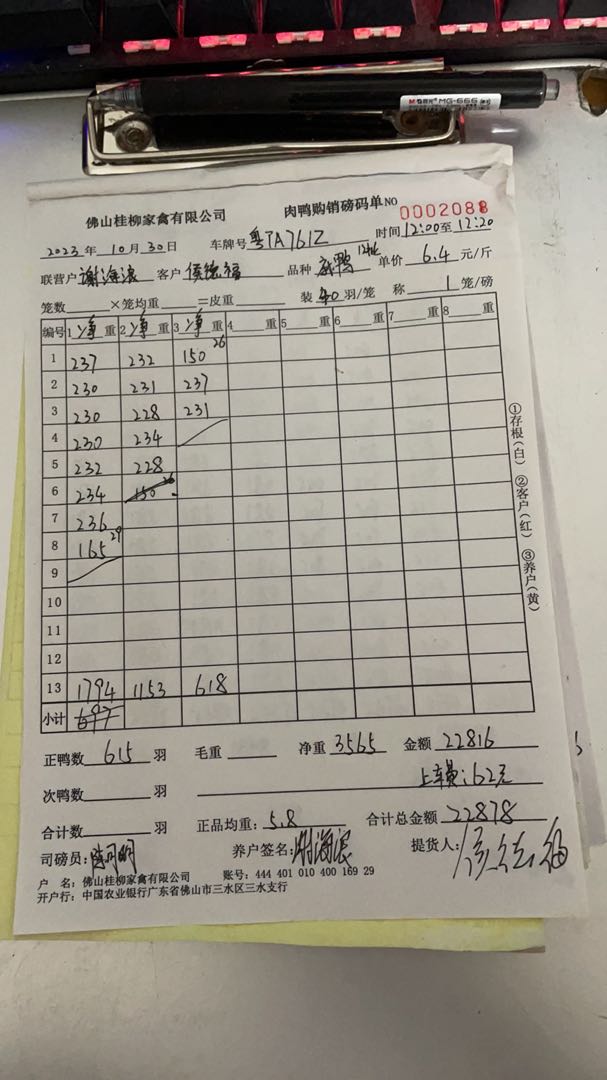 M&G MG-666
佛山桂柳家禽有限公司 肉鸭购销磅码单 NO 0002088
2023年 10月 30日 车牌号 粤TA761Z 时间 12:00至 12:20
联营户 谢海浪 客户 侯德福 品种 单价 6.4 元/斤
笼数 ×笼均重 =皮重 装 40 羽/笼 称 1 笼/磅
编号 1 净 重 2 净 重 3 净 重 4 重 5 重 6 重 7 重 8 重
1 237 232 150 26
2 230 231 237
3 230 228 231
4 230 234
5 232 228
6 234 150
7 236
8 165 29
9
10
11
12
13 1794 1153 618
小计 697
正鸭数 615 羽 毛重 净重 3565 金额 22816
次鸭数 羽 上车费:62元
合计数 羽 正品均重: 5.8 合计总金额 22878
司磅员: 养户签名: 谢海浪 提货人: 侯德福
户 名: 佛山桂柳家禽有限公司 账号: 444 401 010 400 169 29
开户行: 中国农业银行广东省佛山市三水区三水支行
①存根(白) ②客户(红) ③养户(黄)